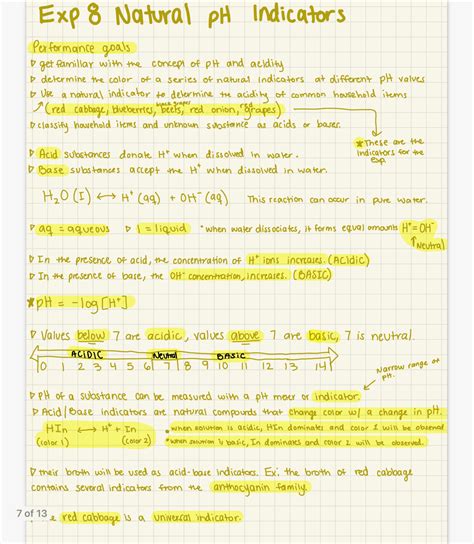 Exp 8 Natural pH Indicators
Performance goals
▷ get familiar with the concept of pH and acidity
▷ determine the color of a series of natural indicators at different pH values
▷ Use a natural indicator to determine the acidity of common household items
(red cabbage, blueberries, beets, red onion, grapes)
▷ classify household items and unknown substance as acids or bases.
* These are the
indicators for the
exp.
▷ Acid substances donate H⁺ when dissolved in water.
▷ Base substances accept the H⁺ when dissolved in water.
H₂O (l) ⟷ H⁺ (aq) + OH⁻ (aq) This reaction can occur in pure water.
▷ aq = aqueous ▷ l = liquid * when water dissociates, it forms equal amounts H⁺ = OH⁻
↑ Neutral
▷ In the presence of acid, the concentration of H⁺ ions increases. (Acidic)
▷ In the presence of base, the OH⁻ concentration, increases. (BASIC)
* pH = -log[H⁺]
▷ Values below 7 are acidic, values above 7 are basic, 7 is neutral.
ACIDIC Neutral BASIC
0 1 2 3 4 5 6 7 8 9 10 11 12 13 14
Narrow range of
pH.
▷ pH of a substance can be measured with a pH meer or indicator.
▷ Acid/Base indicators are natural compounds that change color w/ a change in pH.
HIn ⟷ H⁺ + In
(color 1) (color 2)
* when solution is acidic, HIn dominates and color 1 will be observed
* when solution is basic, In dominates and color 2 will be observed.
▷ their broth will be used as acid-base indicators. Ex: the broth of red cabbage
contains several indicators from the anthocyanin family.
7 of 13
red cabbage is a universal indicator.